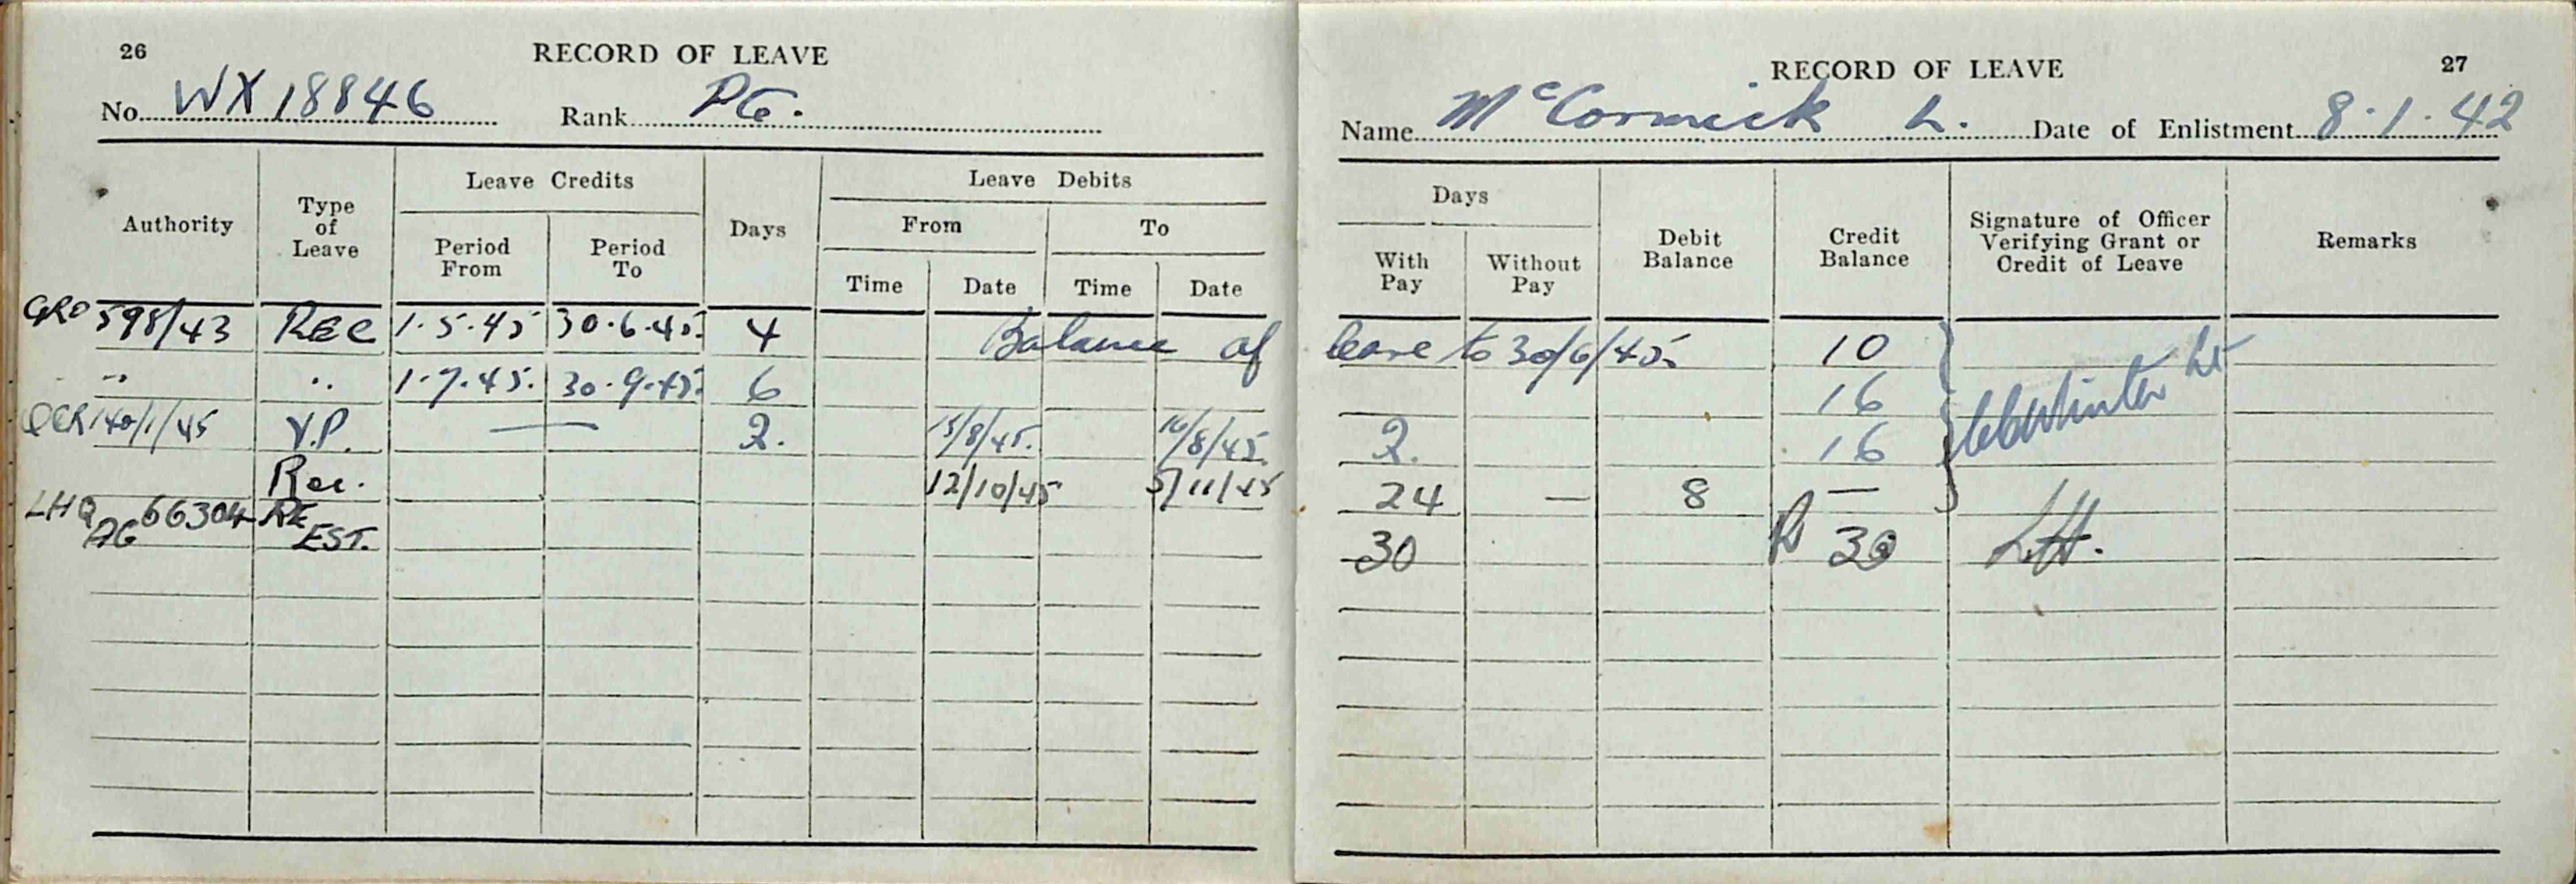 26 RECORD OF LEAVE
No. WX 18846 Rank Pte.
Authority Type of Leave Leave Credits Period From Period To Days Leave Debits From Time Date To Time Date
GRO 598/43 REC 1.5.45 30.6.45. 4 Balance of
" " 1.7.45. 30.9.45. 6
140/1/45 V.P. — 2. 15/8/45. 16/8/45.
Rec. 12/10/45 5/11/45
LHQ AG 66304 RE EST.
RECORD OF LEAVE 27
Name McCormick L. Date of Enlistment 8.1.42
Days With Pay Without Pay Debit Balance Credit Balance Signature of Officer Verifying Grant or Credit of Leave Remarks
leave to 30/6/45. 10
16 Lt
2. 16
24 — 8 —
30 30